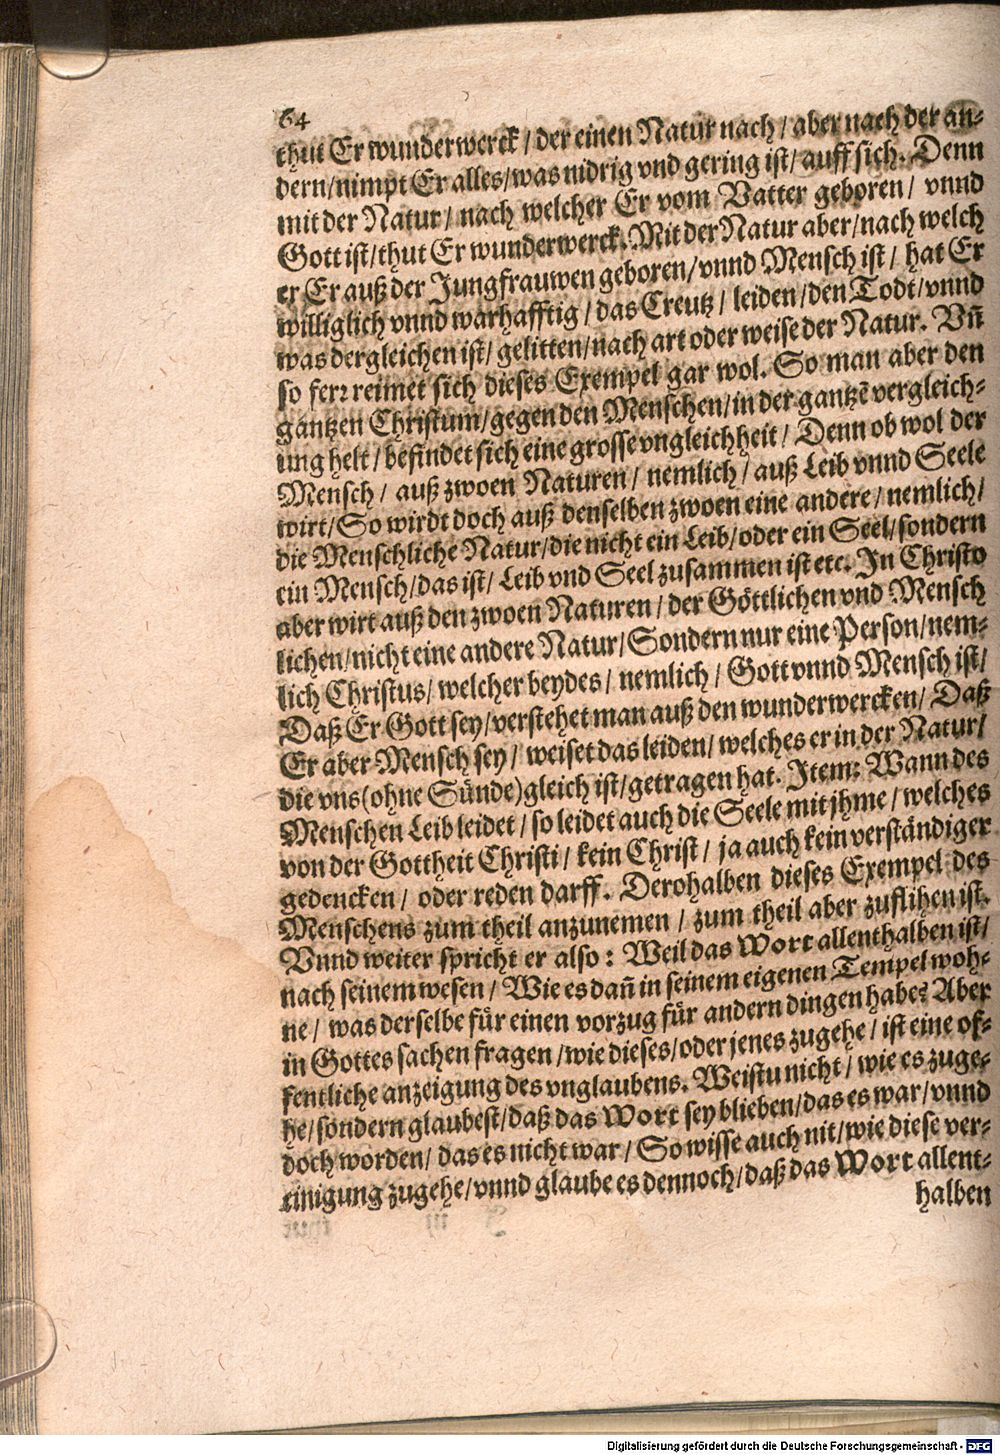 64
thut Er wunderwerck / der einen Natur nach / aber nach der an-
dern / nimpt Er alles / was nidrig vnd gering ist / auff sich. Denn
mit der Natur / nach welcher Er vom Vatter geboren / vnnd
Gott ist / thut Er wunderwerck. Mit der Natur aber / nach welch
er Er auß der Jungfrauwen geboren / vnnd Mensch ist / hat Er
williglich vnnd warhafftig / das Creutz / leiden / den Todt / vnnd
was dergleichen ist / gelitten / nach art oder weise der Natur. Vn̄
so ferꝛ reimet sich dieses Exempel gar wol. So man aber den
gantzen Christum / gegen den Menschen / in der gantzē vergleich-
ung helt / befindet sich eine grosse vngleichheit / Denn ob wol der
Mensch / auß zwoen Naturen / nemlich / auß Leib vnnd Seele
wirt / So wirdt doch auß denselben zwoen eine andere / nemlich /
die Menschliche Natur / die nicht ein Leib / oder ein Seel / sondern
ein Mensch / das ist / Leib vnd Seel zusammen ist etc. In Christo
aber wirt auß den zwoen Naturen / der Göttlichen vnd Mensch
lichen / nicht eine andere Natur / Sondern nur eine Person / nem-
lich Christus / welcher beydes / nemlich / Gott vnnd Mensch ist /
Daß Er Gott sey / verstehet man auß den wunderwercken / Daß
Er aber Mensch sey / weiset das leiden / welches er in der Natur /
die vns (ohne Sünde) gleich ist / getragen hat. Item: Wann des
Menschen Leib leidet / so leidet auch die Seele mit jhme / welches
von der Gottheit Christi / kein Christ / ja auch kein verständiger
gedencken / oder reden darff. Derohalben dieses Exempel des
Menschens zum theil anzunemen / zum theil aber zuflihen ist.
Vnnd weiter spricht er also: Weil das Wort allenthalben ist /
nach seinem wesen / Wie es dañ in seinem eigenen Tempel woh-
ne / was derselbe für einen vorzug für andern dingen habe? Aber
in Gottes sachen fragen / wie dieses / oder jenes zugehe / ist eine of-
fentliche anzeigung des vnglaubens. Weistu nicht / wie es zuge-
he / sondern glaubest / daß das Wort sey blieben / das es war / vnnd
doch worden / das es nicht war / So wisse auch nit / wie diese ver-
einigung zugehe / vnnd glaube es dennoch / daß das Wort allent-
halben
Digitalisierung gefördert durch die Deutsche Forschungsgemeinschaft - DFG